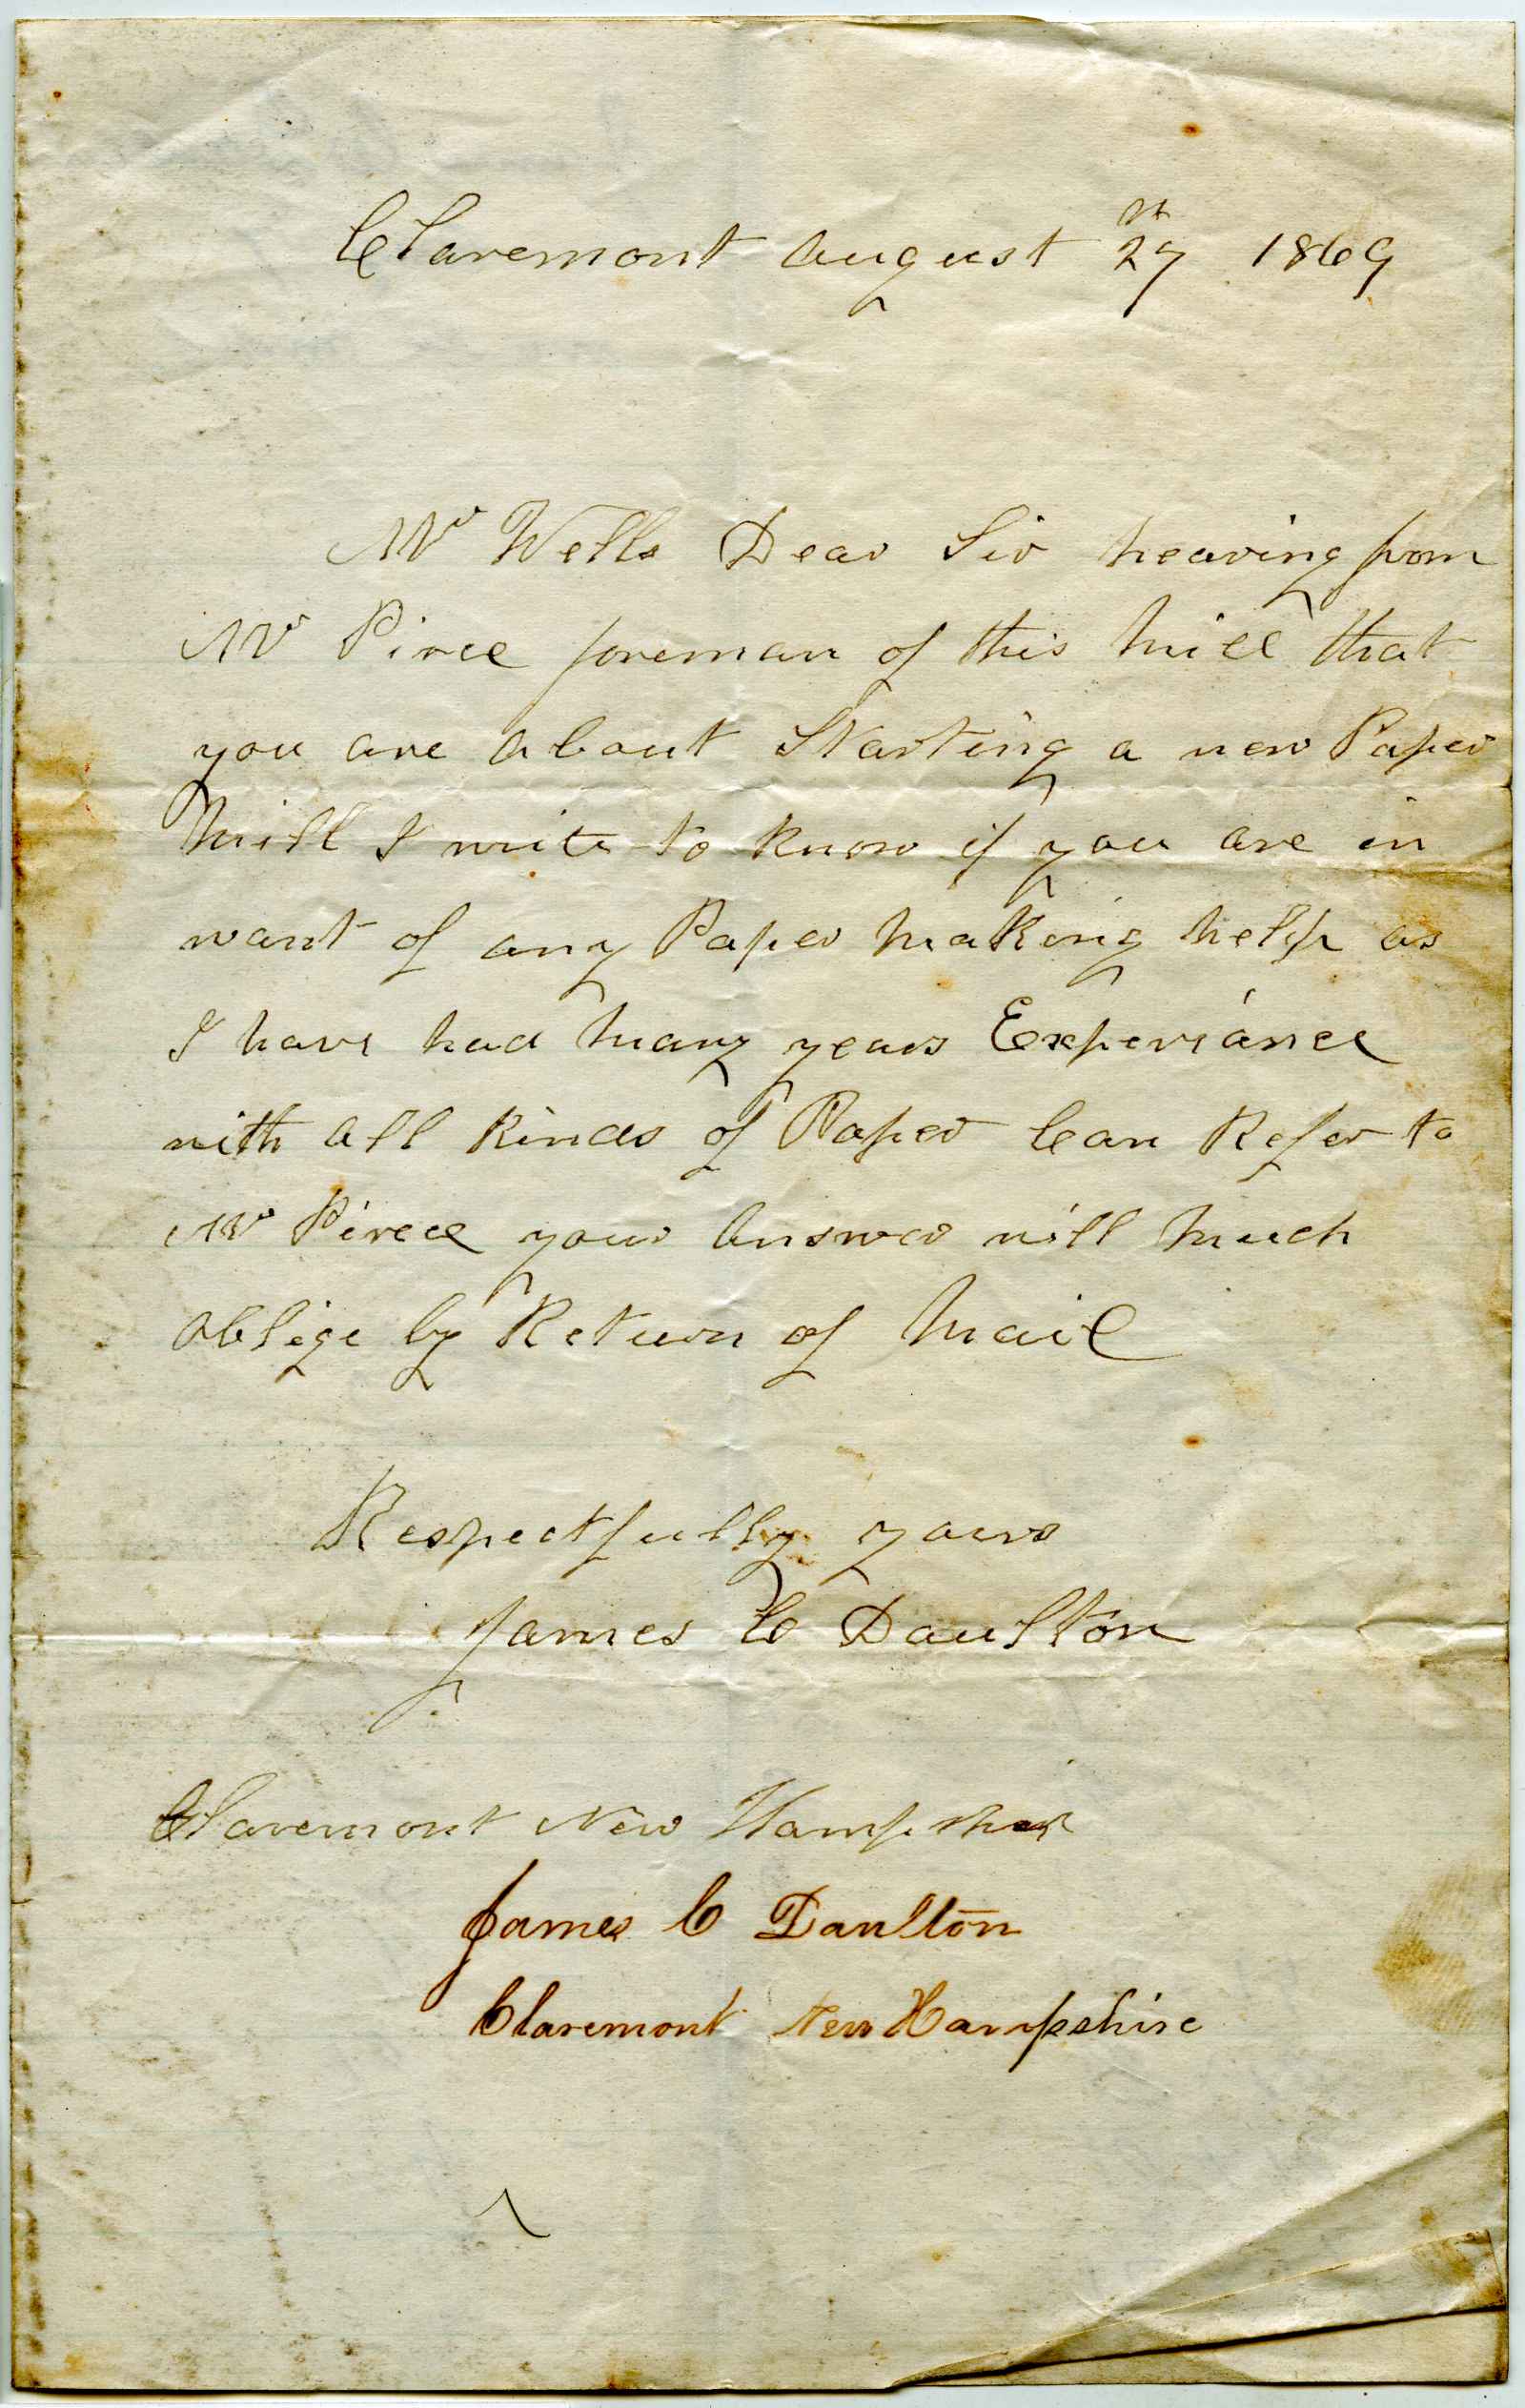 Claremont august 27th 1869
Mr Wells Dear Sir hearing from
Mr Pirce foreman of this Mill that
you are about Starting a new Paper
Mill I write to know if you are in
want of any Paper Making help as
I have had Many years Experiance
with all Kinds of Paper Can Refer to
Mr Pirece your Answer will Much
oblige by Return of Mail
Respectfully yours
James C Daulton
Claremont New Hampshir
James C Daulton
Claremont New Hampshire